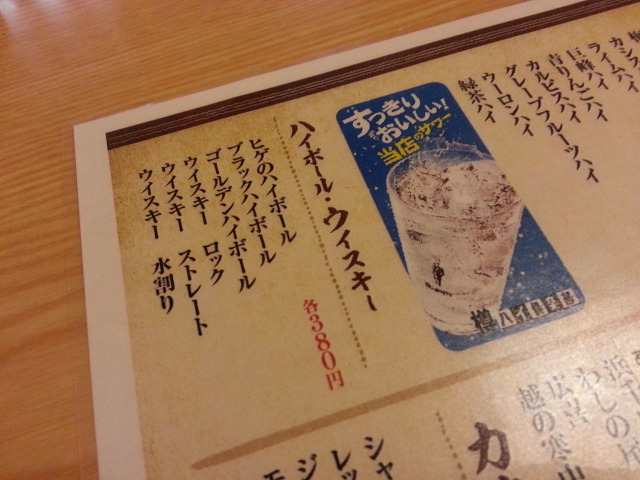 カシス
ライムハイ
巨峰ハイ
青りんごハイ
カルピスハイ
グレープフルーツハイ
ウーロンハイ
緑茶ハイ
すっきり
おいしい!
当店のサワー
樽ハイ倶楽部
ハイボール・ウイスキー
各380円
ヒゲのハイボール
ブラックハイボール
ゴールデンハイボール
ウイスキー ロック
ウイスキー ストレート
ウイスキー 水割り
越の寒
カ
シャ
レッ
ジ
モ